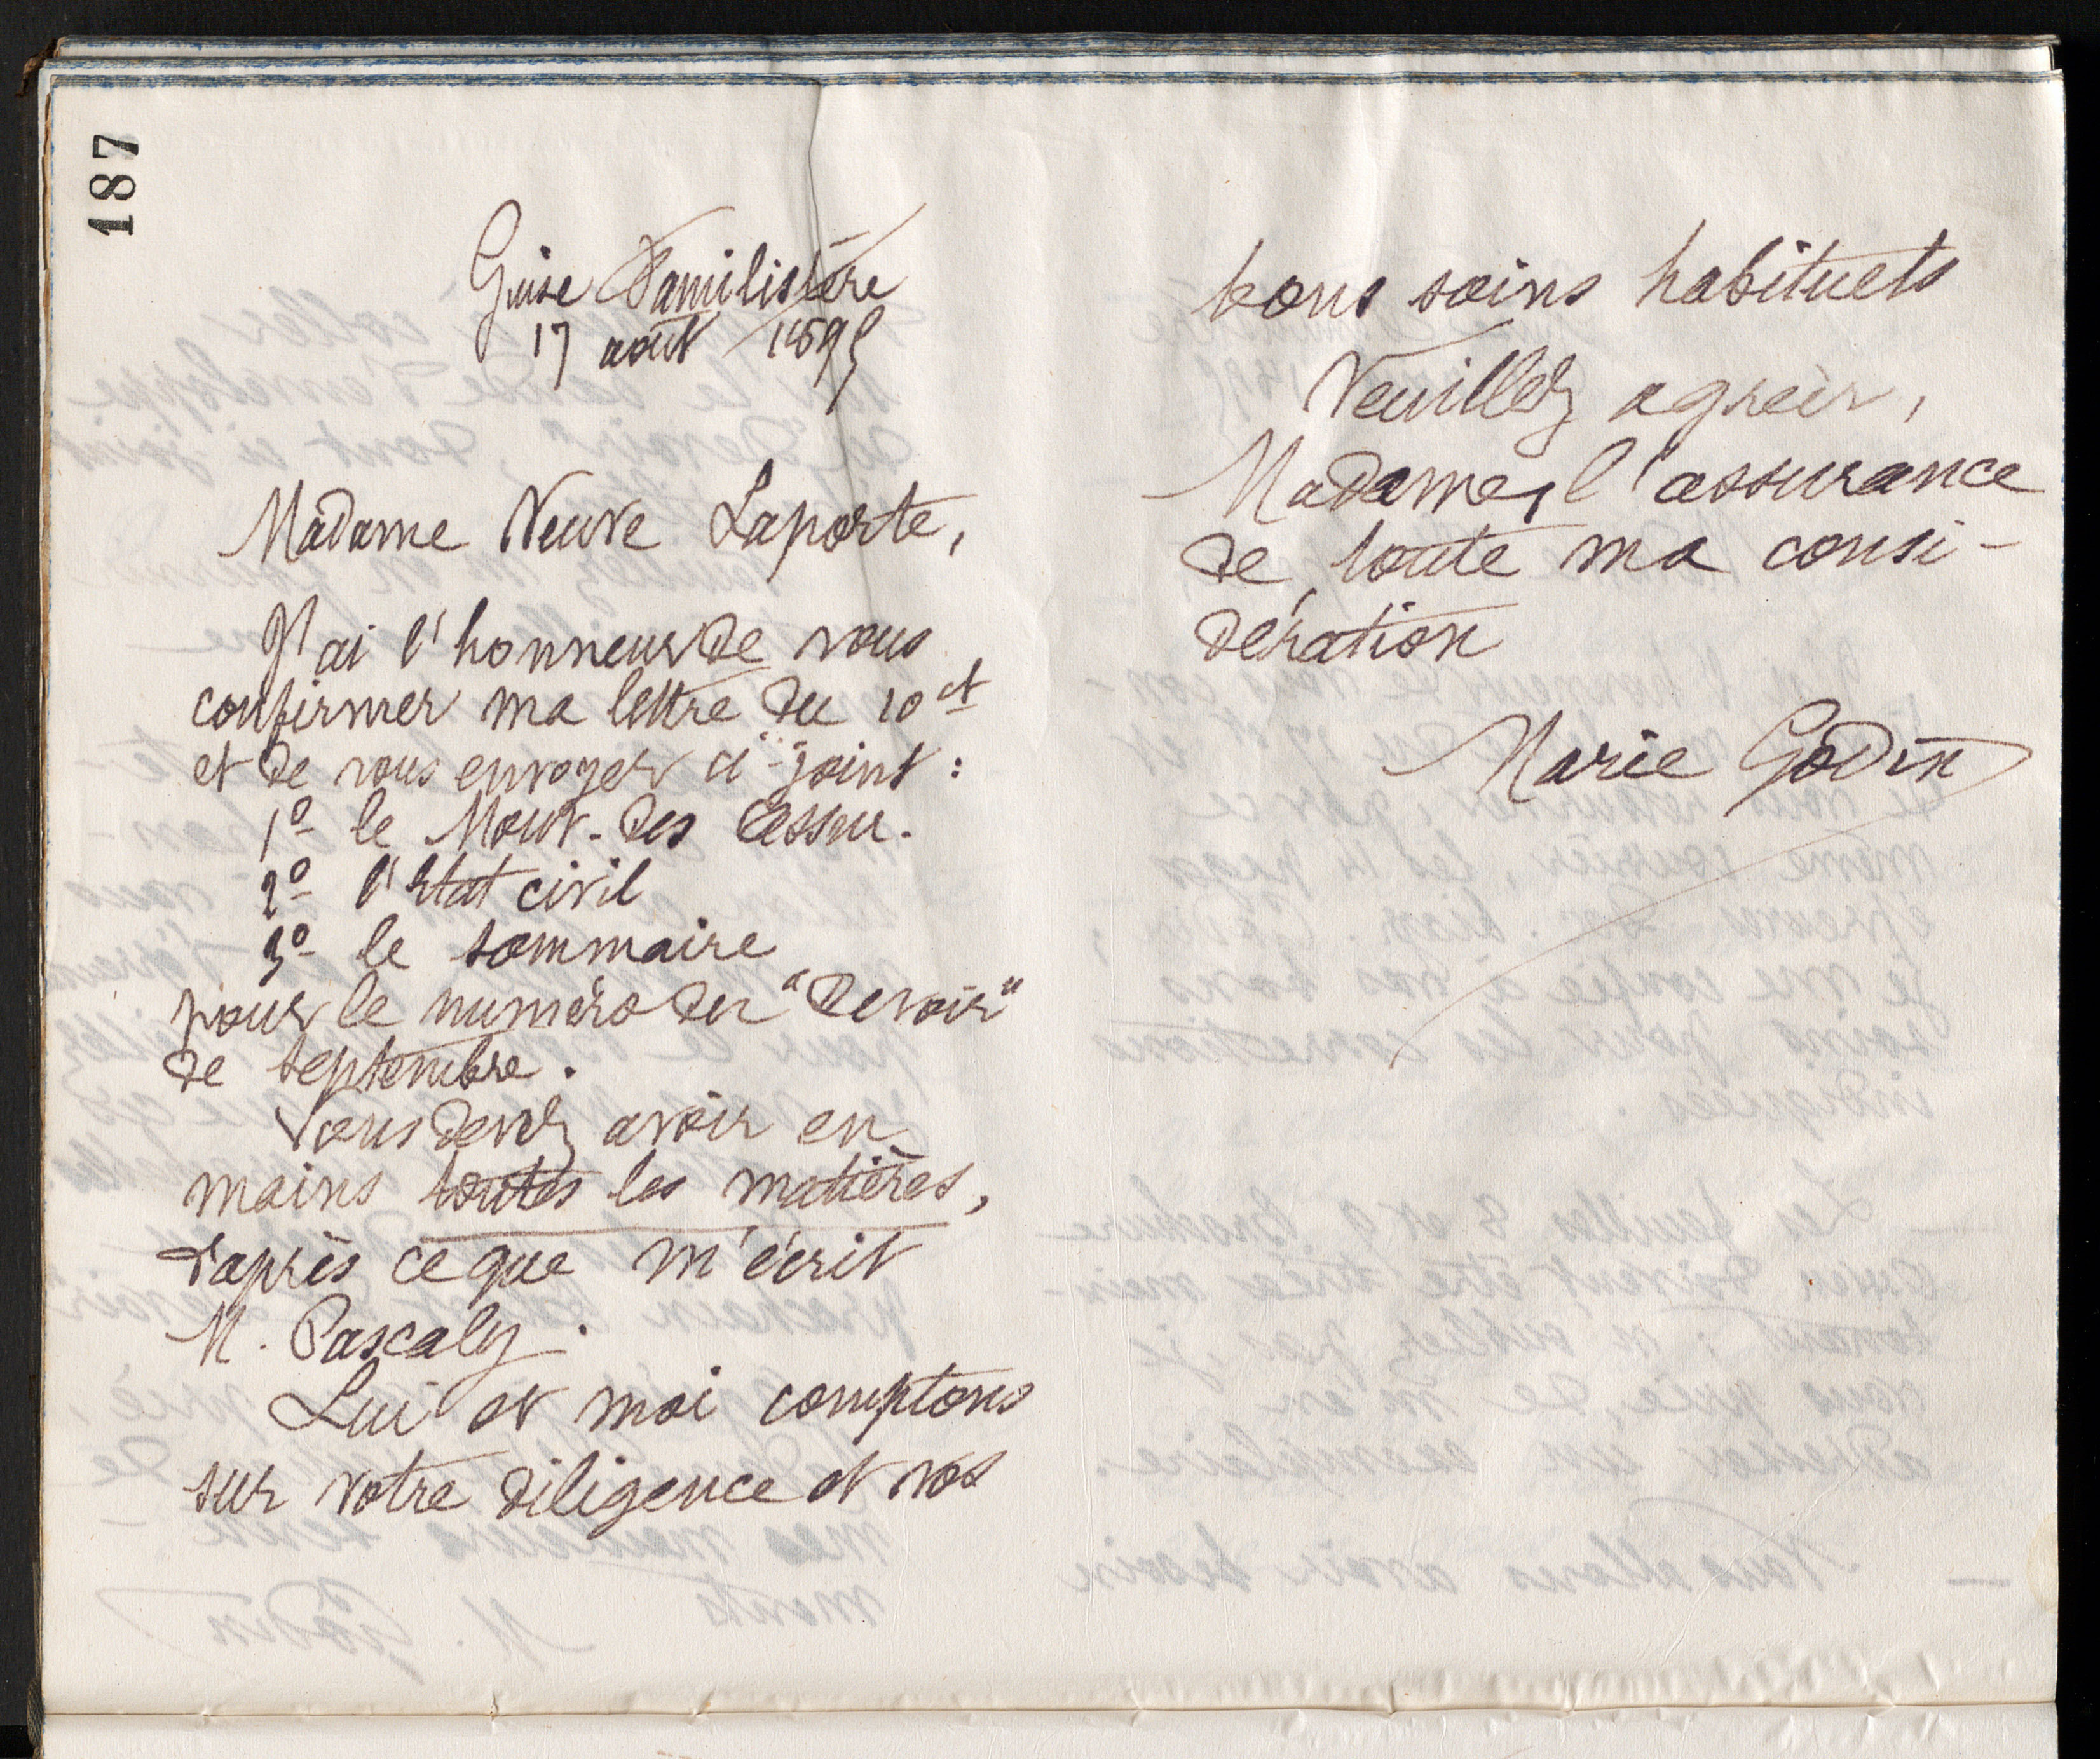 187
Guise Familistère
17 août 1895
Madame Veuve Laporte,
J'ai l'honneur de vous
confirmer ma lettre du 10 ct
et de vous envoyer ci-joint :
1º le Mouv. des Assu.
2º l'Etat civil
3º le sommaire
pour le numéro du "Devoir"
de septembre.
Vous devez avoir en
mains toutes les matières,
d'après ce que m'écrit
M. Pascaly.
Lui et moi comptons
sur votre diligence et vos
bons soins habituels
Veuillez agréer,
Madame, l'assurance
de toute ma consi-
dération
Marie Godin